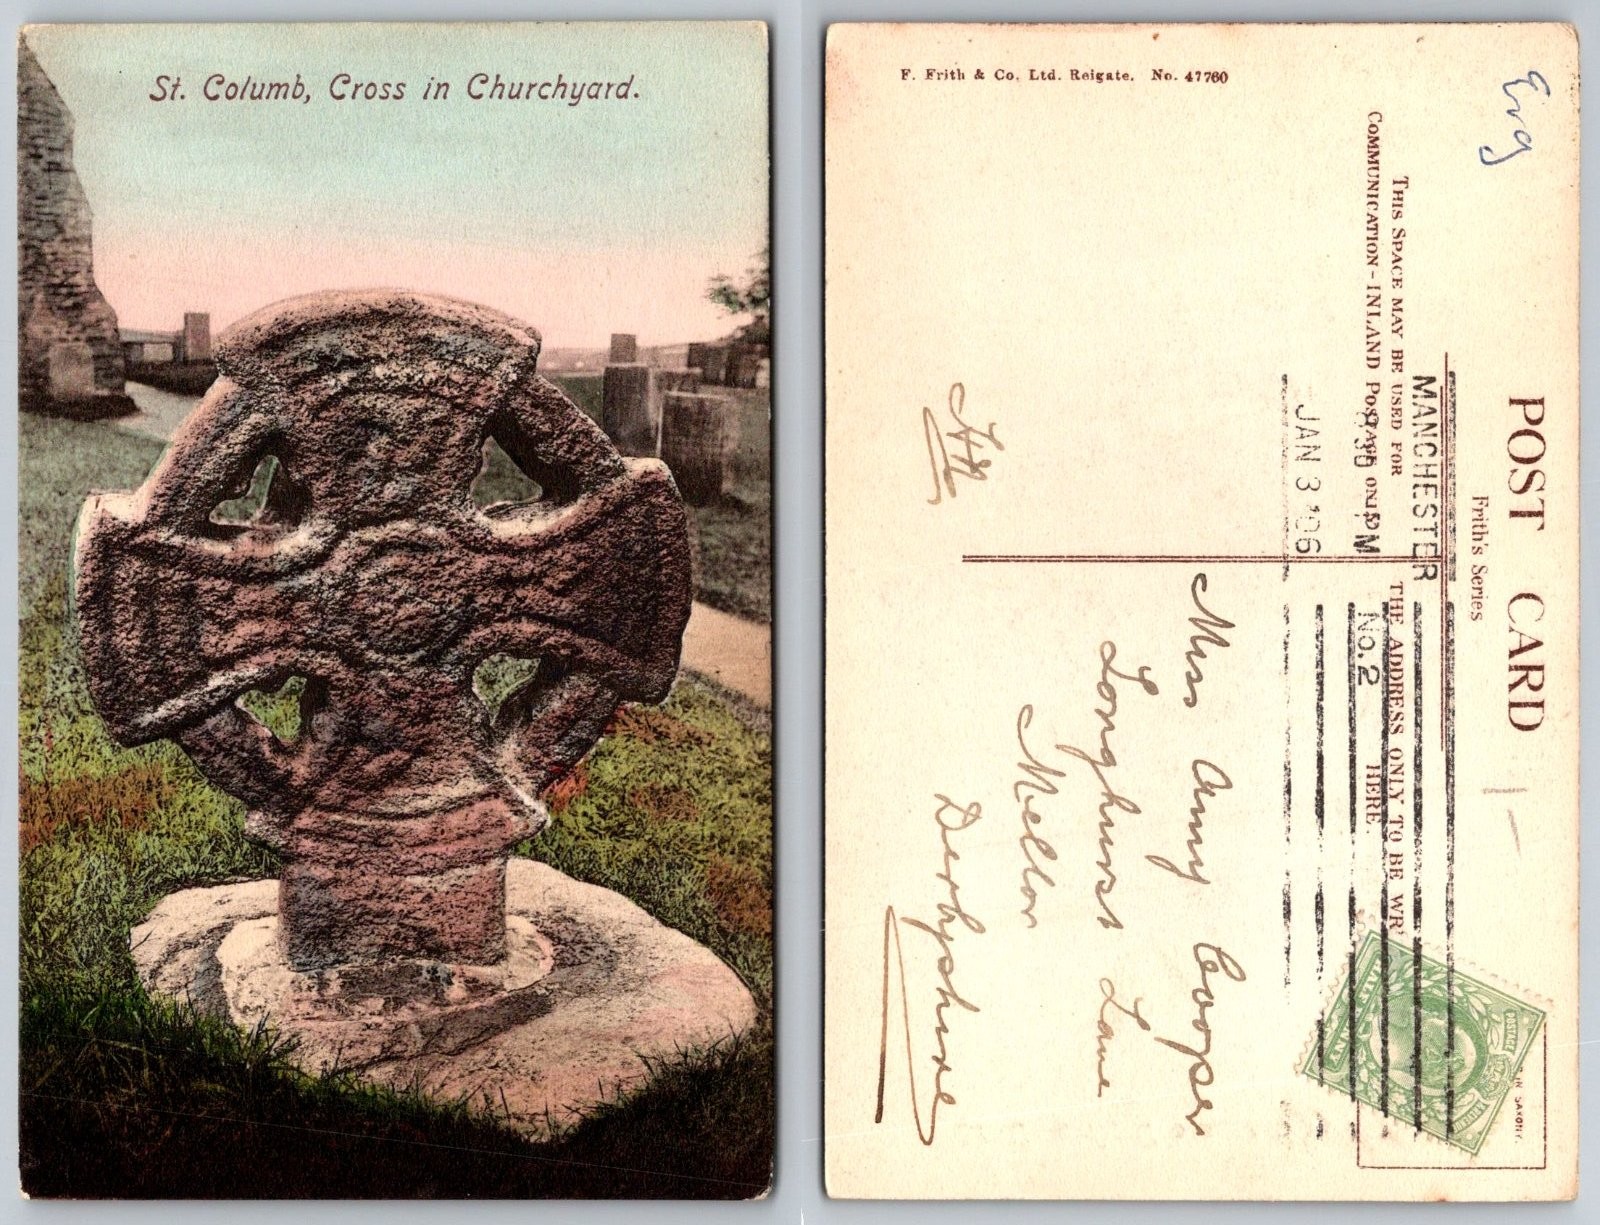 St. Columb, Cross in Churchyard.
F. Frith & Co. Ltd. Reigate. No. 47760
Eng
POST CARD
Frith's Series
THIS SPACE MAY BE USED FOR
COMMUNICATION - INLAND POSTAGE ONLY
THE ADDRESS ONLY TO BE WR
HERE.
MANCHESTER
30 PM
JAN 3 '06
No. 2
IN SAXONY.
POSTAGE
Miss Amy Cooper
Longhurst Lane
Mellor
Derbyshire